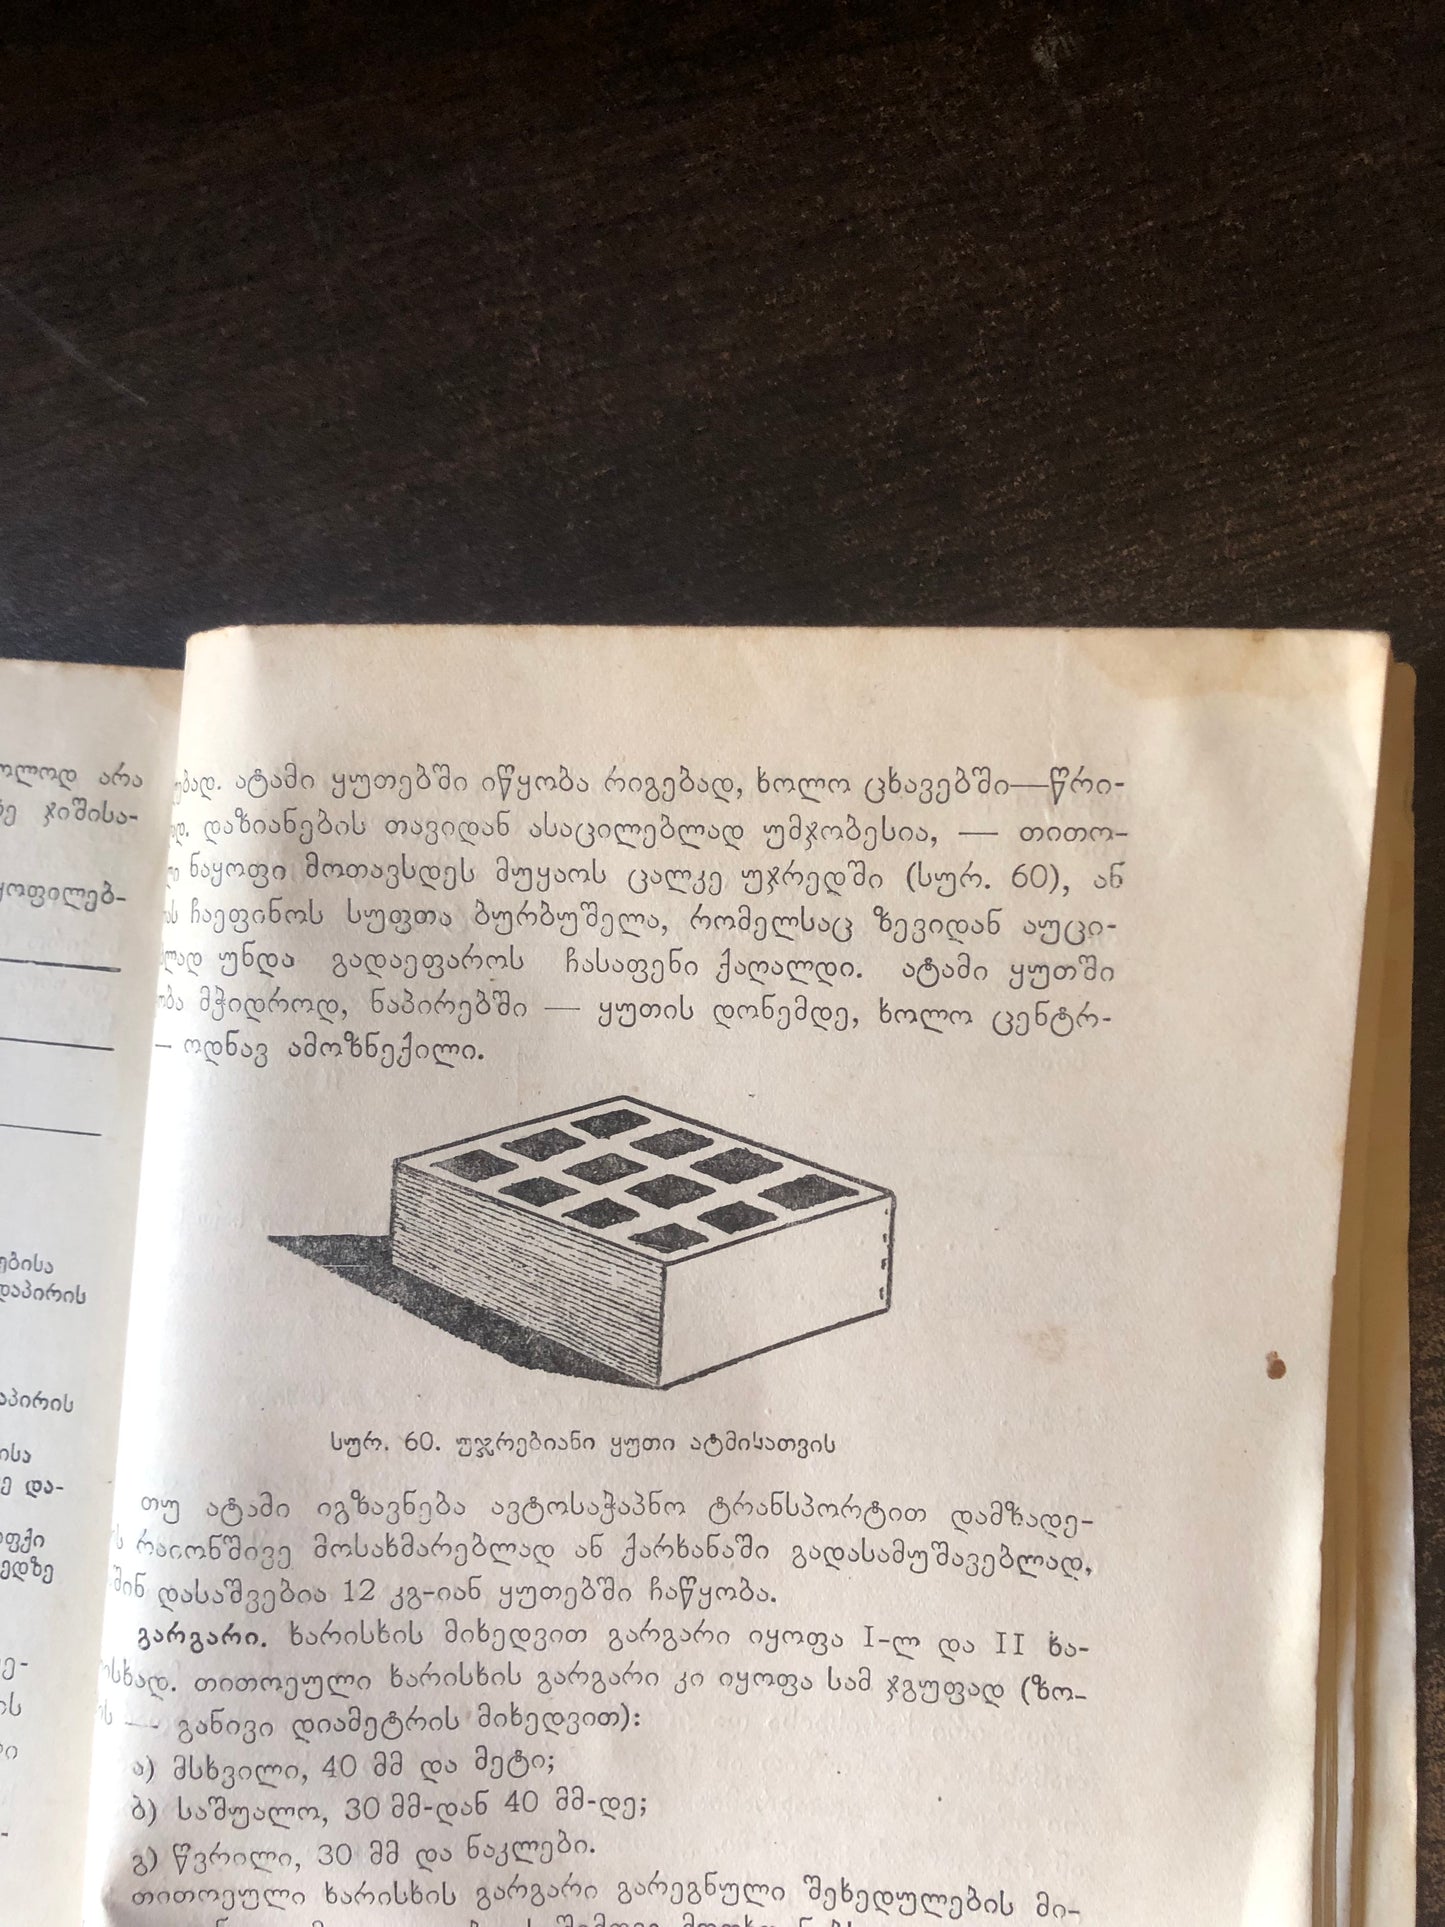 არა
ჯიშისა-
ებად. ატამი ყუთებში იწყობა რიგებად, ხოლო ცხავებში—წრი-
დაზიანების თავიდან ასაცილებლად უმჯობესია, — თითო-
ნაყოფი მოთავსდეს მუყაოს ცალკე უჯრედში (სურ. 60), ან
ჩაეფინოს სუფთა ბურბუშელა, რომელსაც ზევიდან აუცი-
ლად უნდა გადაეფაროს ჩასაფენი ქაღალდი. ატამი ყუთში
ობა მჭიდროდ, ნაპირებში — ყუთის დონემდე, ხოლო ცენტრ-
— ოდნავ ამოზნექილი.
სურ. 60. უჯრებიანი ყუთი ატმისათვის
თუ ატამი იგზავნება ავტოსაჭაპნო ტრანსპორტით დამზადე-
რაიონშივე მოსახმარებლად ან ქარხანაში გადასამუშავებლად,
მშინ დასაშვებია 12 კგ-იან ყუთებში ჩაწყობა.
გარგარი. ხარისხის მიხედვით გარგარი იყოფა I-ლ და II ხა-
ისხად. თითოეული ხარისხის გარგარი კი იყოფა სამ ჯგუფად (ზო-
ის — განივი დიამეტრის მიხედვით):
ა) მსხვილი, 40 მმ და მეტი;
ბ) საშუალო, 30 მმ-დან 40 მმ-დე;
გ) წვრილი, 30 მმ და ნაკლები.
თითოეული ხარისხის გარგარი გარეგნული შეხედულების მი-